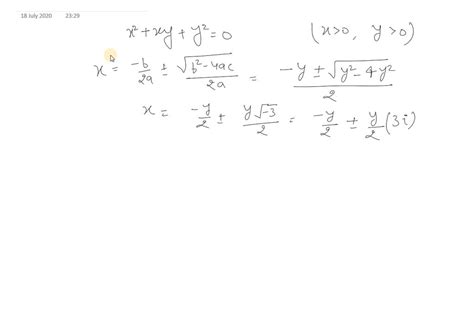 18 July 2020 23:29
x² + xy + y² = 0 (x>0, y>0)
x = -b/2a ± √(b²-4ac)/2a = (-y ± √(y²-4y²))/2
x = -y/2 ± y√-3/2 = -y/2 ± y/2 (3i)